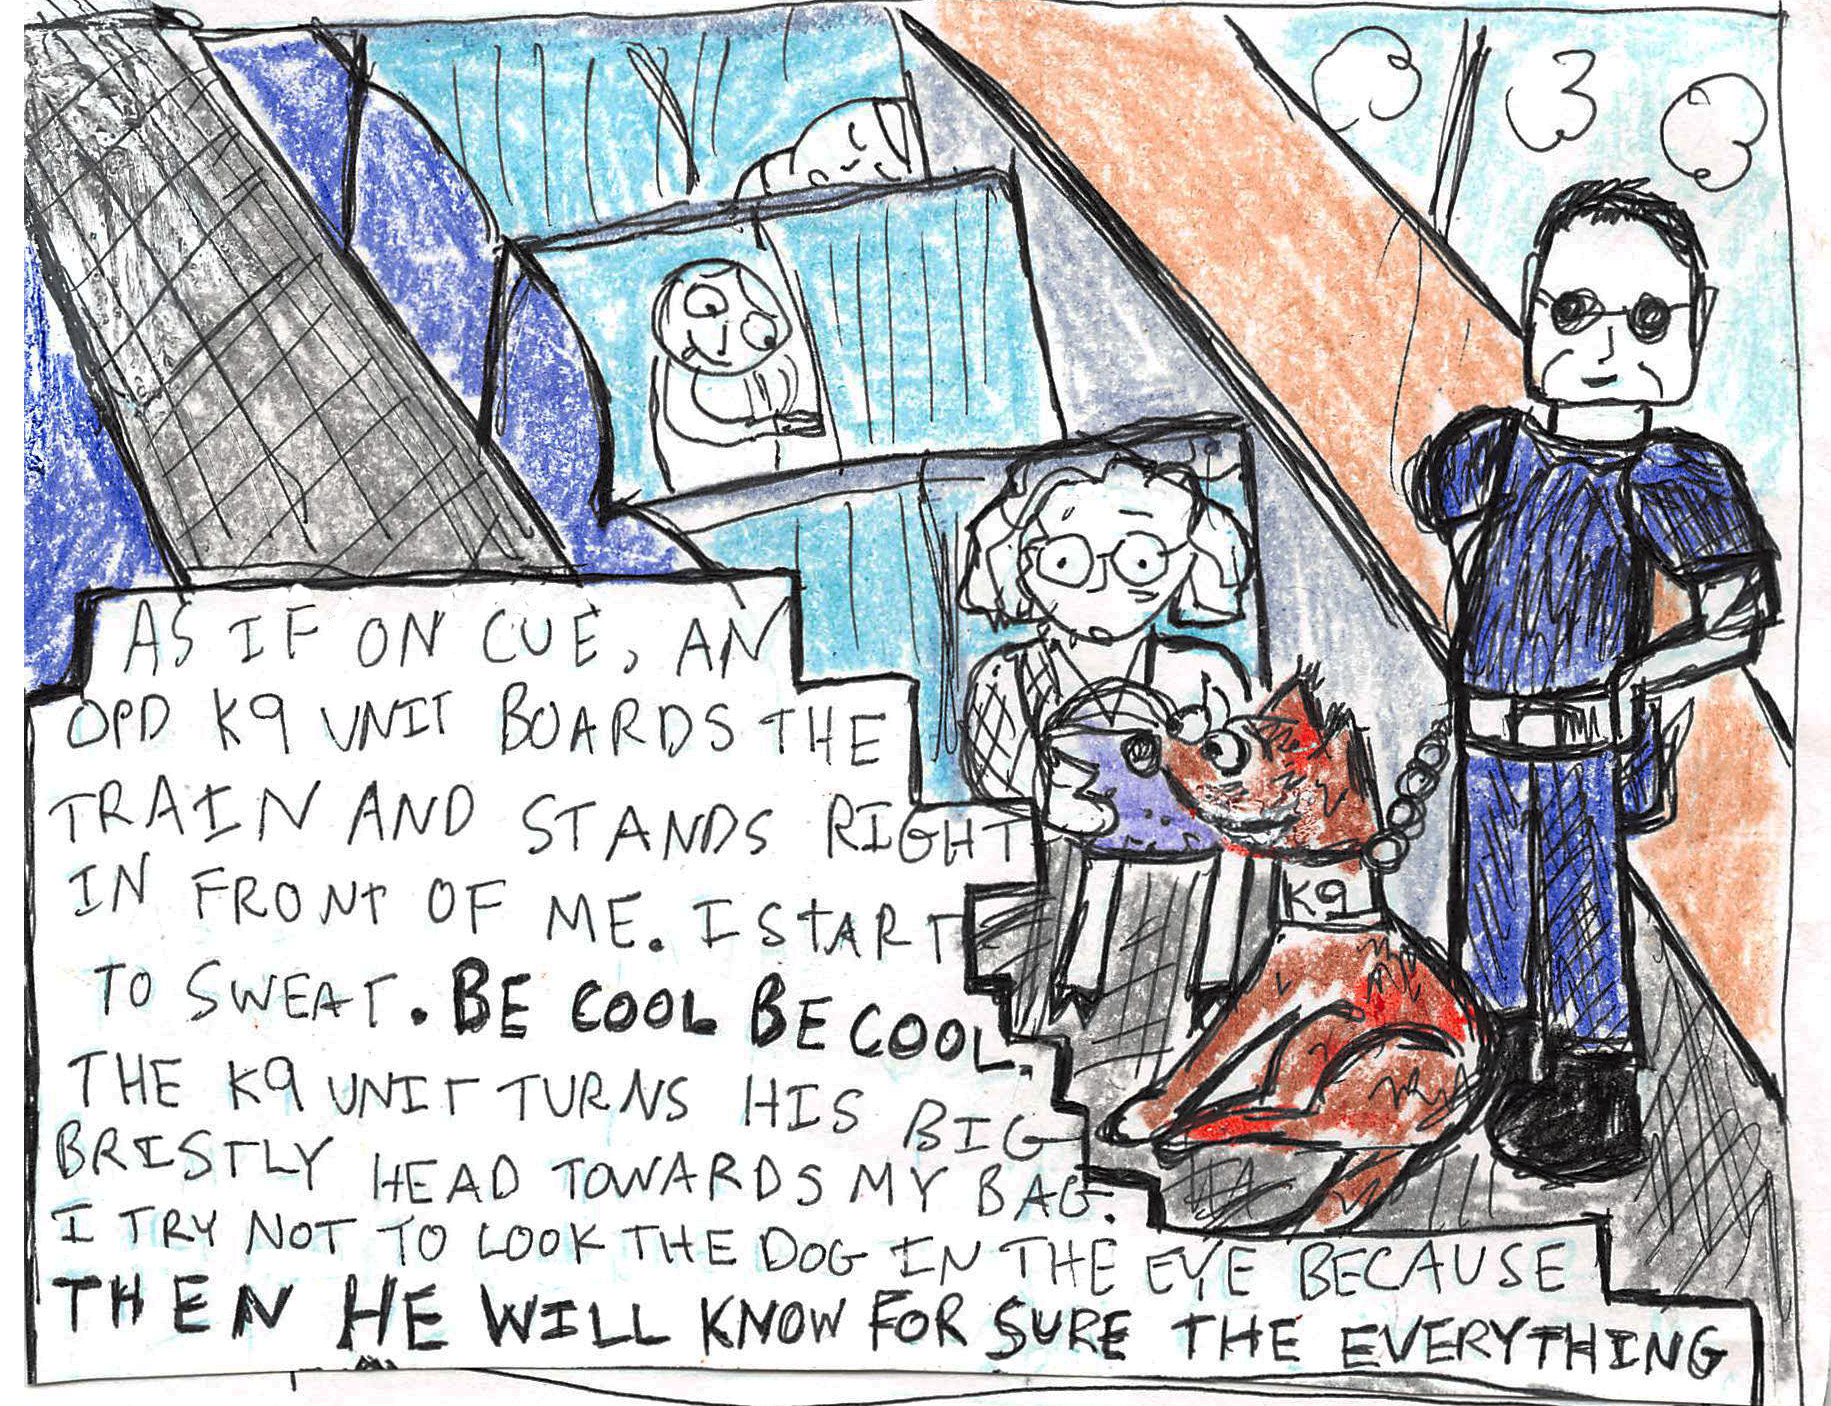 AS IF ON CUE, AN
OPD K9 UNIT BOARDS THE
TRAIN AND STANDS RIGHT
IN FRONT OF ME. I START
TO SWEAT. BE COOL BE COOL.
THE K9 UNIT TURNS HIS BIG
BRISTLY HEAD TOWARDS MY BAG.
I TRY NOT TO LOOK THE DOG IN THE EYE BECAUSE
THEN HE WILL KNOW FOR SURE THE EVERYTHING
K9